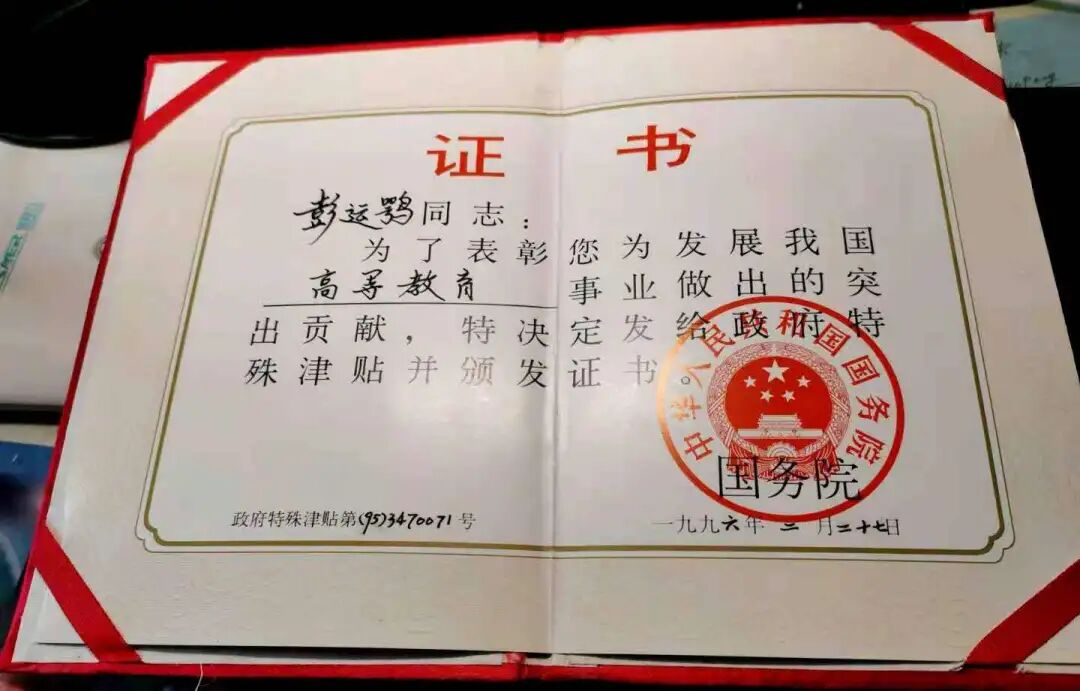 证书
彭运鹗同志：
为了表彰您为发展我国
高等教育事业做出的突
出贡献，特决定发给政府特
殊津贴并颁发证书。
中华人民共和国国务院
国务院
政府特殊津贴第(95)3470071号
一九九六年二月二十七日